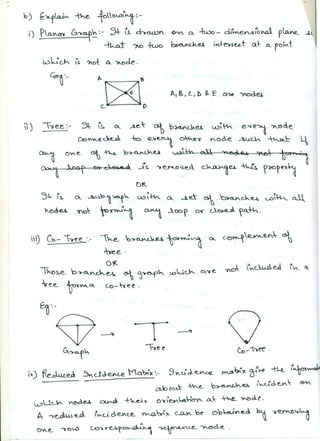 b) Explain the following :-
i) Planar Graph :- It is drawn on a two-dimensional plane so
that no two branches intersect at a point
which is not a node.
Eg :-
A B
E
A, B, C, D & E are nodes
C D
ii) Tree :- It is a set of branches with every node
connected to every other node such that if
any one of the branches with all nodes not forming
any loop or closed is removed changes this property
OR
It is a subgraph with a set of branches with all
nodes not forming any loop or closed path.
iii) Co-Tree :- The branches forming a complement of
tree.
OR
Those branches of graph which are not included in a
tree forms co-tree.
Eg :-
Graph Tree Co-Tree
iv) Reduced Incidence Matrix :- Incidence matrix give the informat
about the branches incident on
which nodes and their orientation at the node.
A reduced incidence matrix can be obtained by removing
one row corresponding reference node.